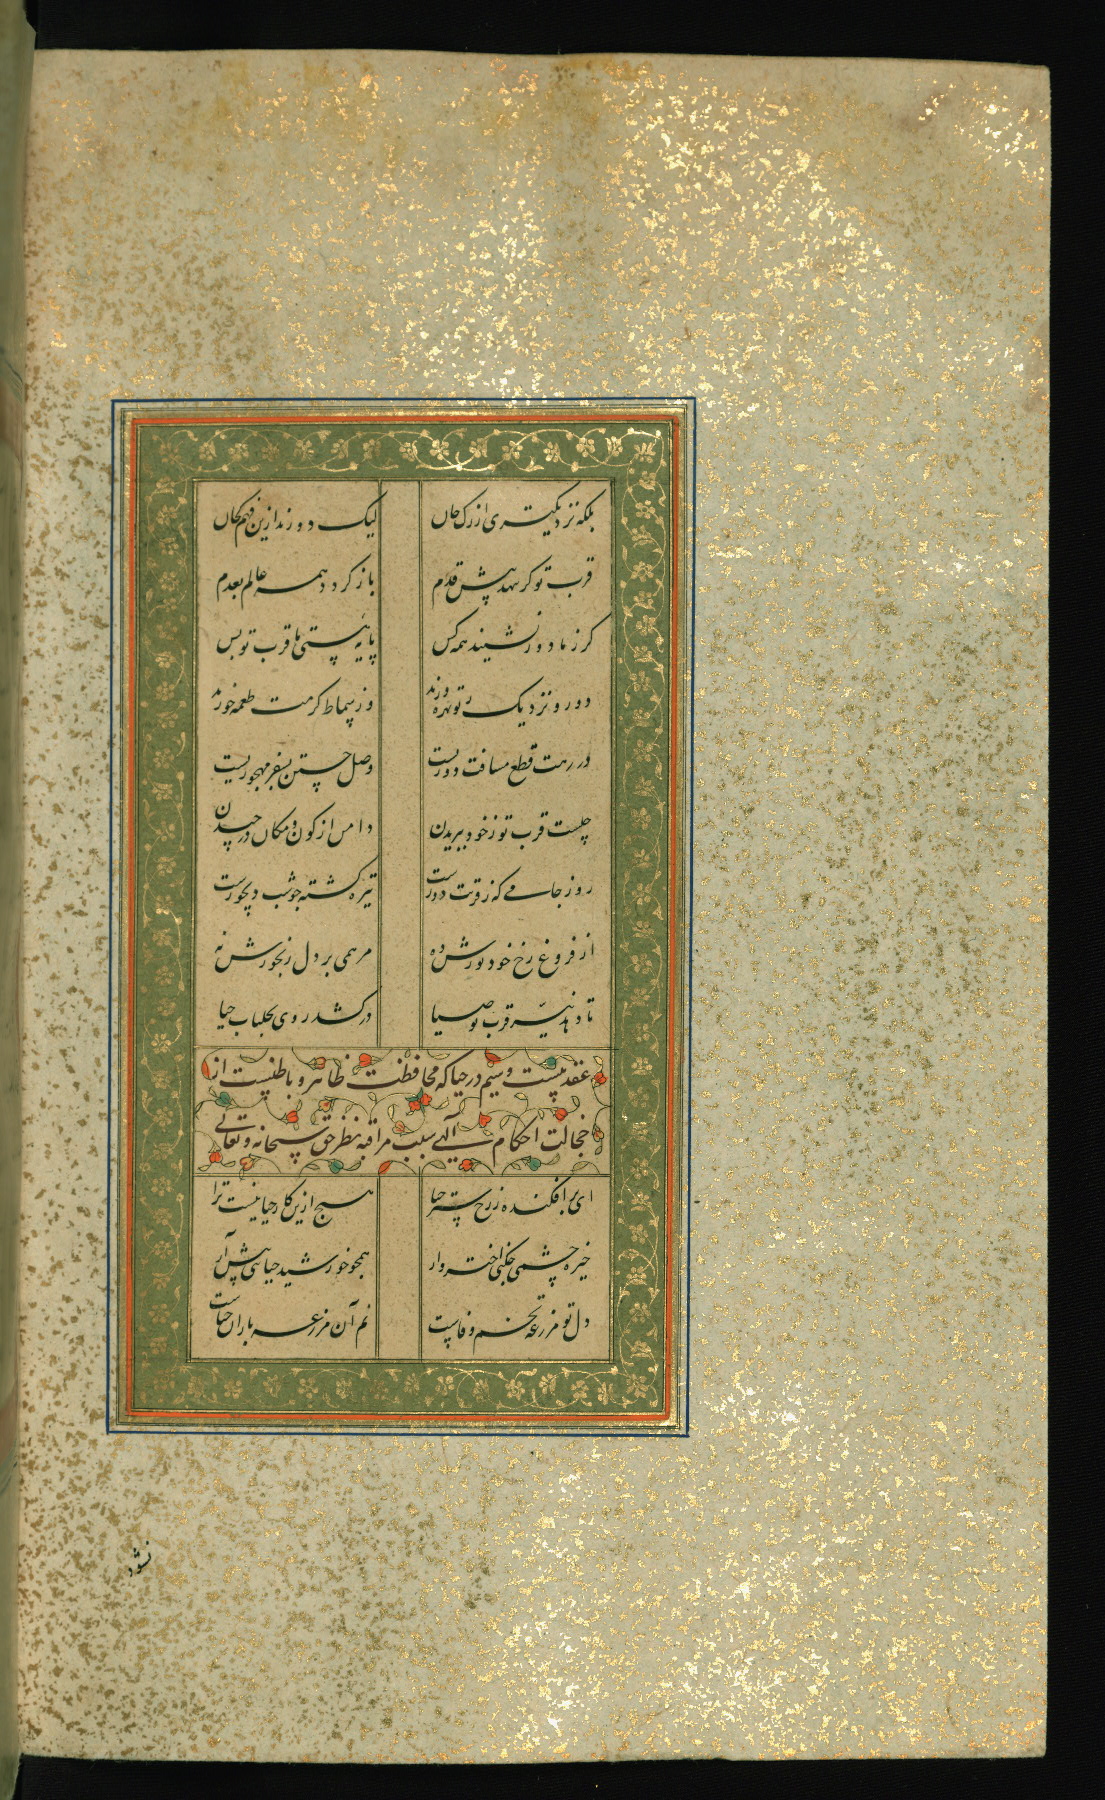 بلکه نزدیکتری از رگ جان لیک دورند ازین فهم کجان
قرب تو گر نهد پیش قدم باز گردد همه عالم بعدم
گر ز ما دور نشیند همه کس پایه هستی ما قرب تو بس
دور و نزدیک ز تو بهره ورند وز سماط کرمت طعمه خورند
در رهت قطع مسافت دوریست وصل جستن بسفر مهجوریست
چیست قرب تو ز خود ببریدن دامن از کون و مکان در چیدن
روز جامی که ز قربت دورست تیره گشته چو شب دیجورست
از فروغ رخ خود نورش ده مرهمی بر دل رنجورش نه
تا دهد نیر قرب تو ضیا درکشد روی بجلباب حیا
عقد بیست و سیم در حیا که محافظت ظاهر و باطنست از
خجالت احکام آلهی بسبب مراقبه نظر حق سبحانه و تعالی
ای برافکنده ز رخ ستر حیا هیچ ازین کار حیا نیست ترا
خیره چشمی چکنی اختروار همچو خورشید حیائی پیش آر
دل تو مزرعه تخم وفاست نم آن مزرعه باران حیاست
نشود